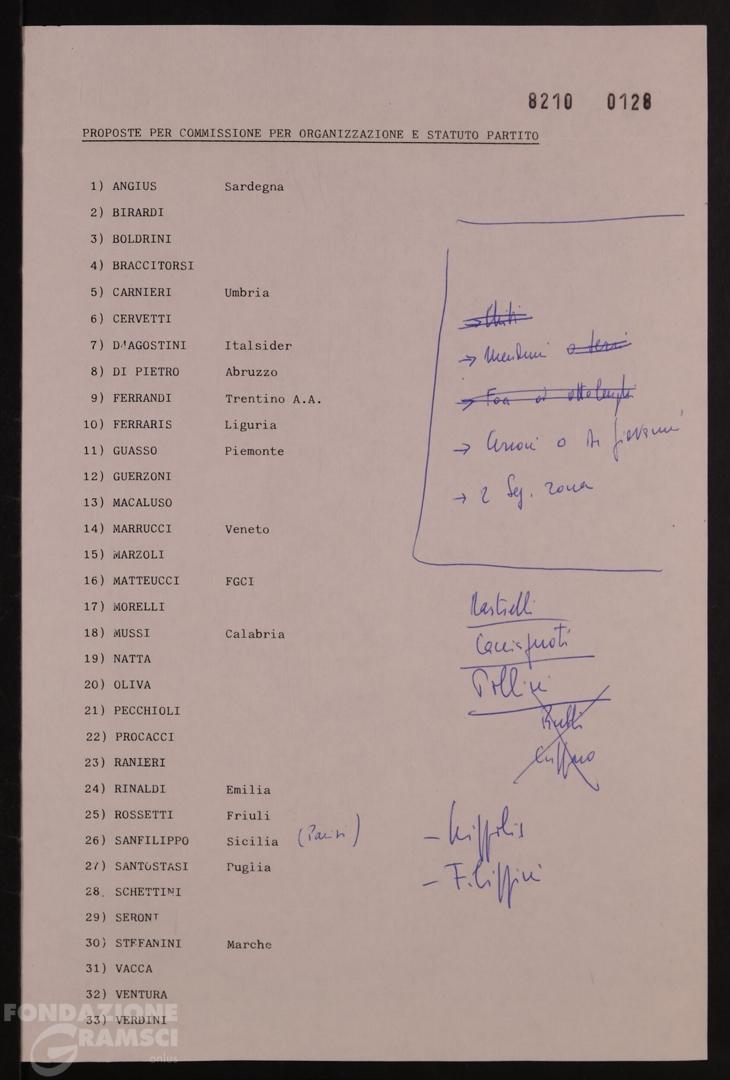 8210 0128
PROPOSTE PER COMMISSIONE PER ORGANIZZAZIONE E STATUTO PARTITO
1) ANGIUS Sardegna
2) BIRARDI
3) BOLDRINI
4) BRACCITORSI
5) CARNIERI Umbria
6) CERVETTI
7) D'AGOSTINI Italsider
8) DI PIETRO Abruzzo
9) FERRANDI Trentino A.A.
10) FERRARIS Liguria
11) GUASSO Piemonte
12) GUERZONI
13) MACALUSO
14) MARRUCCI Veneto
15) MARZOLI
16) MATTEUCCI FGCI
17) MORELLI
18) MUSSI Calabria
19) NATTA
20) OLIVA
21) PECCHIOLI
22) PROCACCI
23) RANIERI
24) RINALDI Emilia
25) ROSSETTI Friuli
26) SANFILIPPO Sicilia (Parisi)
27) SANTOSTASI Puglia
28. SCHETTINI
29) SERONI
30) STEFANINI Marche
31) VACCA
32) VENTURA
33) VERDINI
→ Chiti
→
→ Foa
→ o Di Giovanni
→ 2 Seg. zona
Pollini
– Filippini
FONDAZIONE
GRAMSCI
onlus